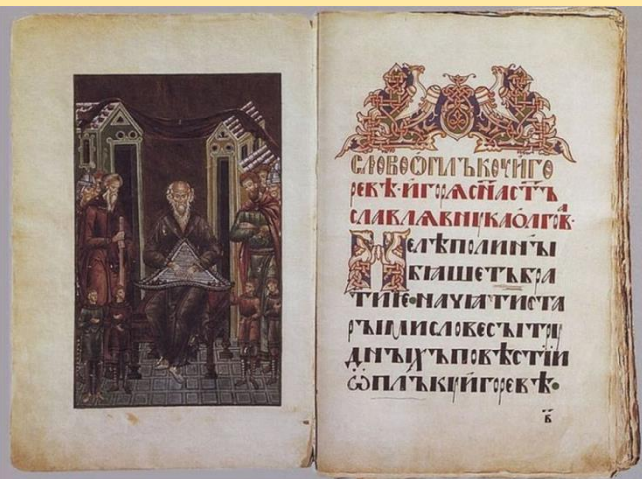 СЛОВО Ѡ ПЛЪКОУ ИГО
РЕВѢ · ИГОРѦ СН҃А СТЪ
СЛАВЛѦ ВНУКА ОЛГОВᷓ
НЕ ЛѢПО ЛИ НЫ
БѦШЕТЪ БРА
ТИЕ · НАЧѦТИ СТА
РЫМИ СЛОВЕСЫ ТРУ
ДНЫХЪ ПОВѢСТІИ
Ѡ ПЛЪКУ ИГОРЕВѢ ·
В҃